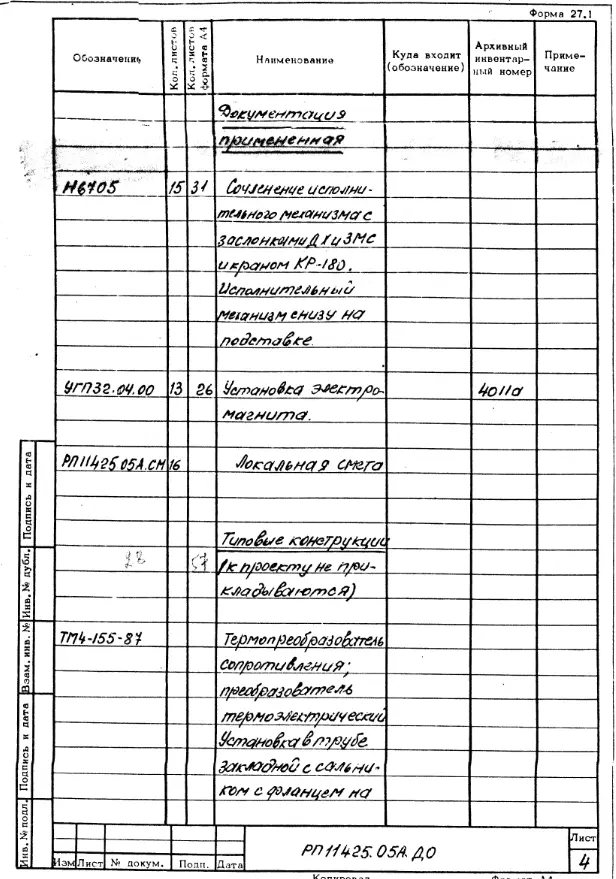 Форма 27.1
Обозначение Кол. листов Кол. листов формата А4 Наименование Куда входит (обозначение) Архивный инвентар-ный номер Приме-чание
Документация
примененная
Н6705 15 31 Сочленение исполни-
тельного механизма с
заслонками ДХ и ЗМС
и краном КР-180.
Исполнительный
механизм снизу на
подставке.
УГП32.04.00 13 26 Установка электро-
магнита. 4011а
РП11425 05А.СМ 16 Локальная смета
Типовые конструкции
28 57 (к проекту не при-
кладываются)
ТМ4-155-87 Термопреобразователь
сопротивления;
преобразователь
термоэлектрический
Установка в трубе
закладной с сальни-
ком с фланцем на
Инв. № подл. Подпись и дата Взам. инв. № Инв. № дубл. Подпись и дата
РП11425.05А.ДО
Лист
4
Изм Лист № докум. Подп. Дата
Копировал Формат А4